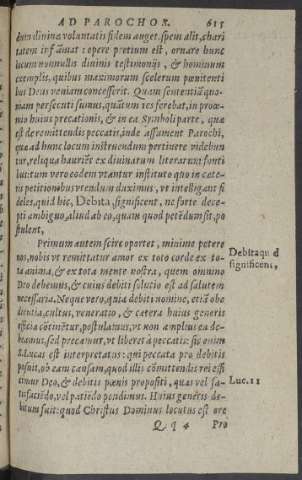 AD PAROCHOS. 615
tum diuinæ voluntatis fidem auget, spem alit, chari
tatem inflãmat: operæ pretium est, ornare hunc
locum nonnullis diuinis testimonijs, & hominum
exemplis, quibus maximorum scelerum pœnitenti
bus Deus veniam concesserit. Quam sententiã quo-
niam persecuti sumus, quãtum res ferebat, in proœ-
mio huius precationis, & in ea Symboli parte, quæ
est de remittendis peccatis, inde assument Parochi,
quæ ad hunc locum instruendum pertinere videbun
tur, reliqua haurient ex diuinarum literarum fonti
bus: tum vero eodem vtantur instituto quo in cæte-
ris petitionibus vtendum duximus, vt intelligant fi
deles, quid hic, Debita, significent, ne forte dece-
pti ambiguo, aliud ab eo, quam quod petẽdum sit, po
stulent,
Primum autem scire oportet, minime petere
nos, nobis vt remittatur amor ex toto corde ex to-
ta anima, & ex tota mente nostra, quem omnino
Deo debemus, & cuius debiti solutio est ad salutem
necessaria. Neque vero, quia debiti nomine, etiã obe
dientia, cultus, veneratio, & cætera huius generis
officia cõtinẽtur, postulamus, vt non amplius ea de-
beamus, sed precamur, vt liberet à peccatis: sic enim
D. Lucas est interpretatus: qui peccata pro debitis
posuit, ob eam causam, quod illis cõmittendis rei effi
cimur Deo, & debitis pœnis propositi, quas vel sa-
tisfaciẽdo, vel patiẽdo pendimus. Huius generis de-
bitum fuit: quod Christus Dominus locutus est ore
Q q 4 Pro
Debita quid
significent,
Luc. 11